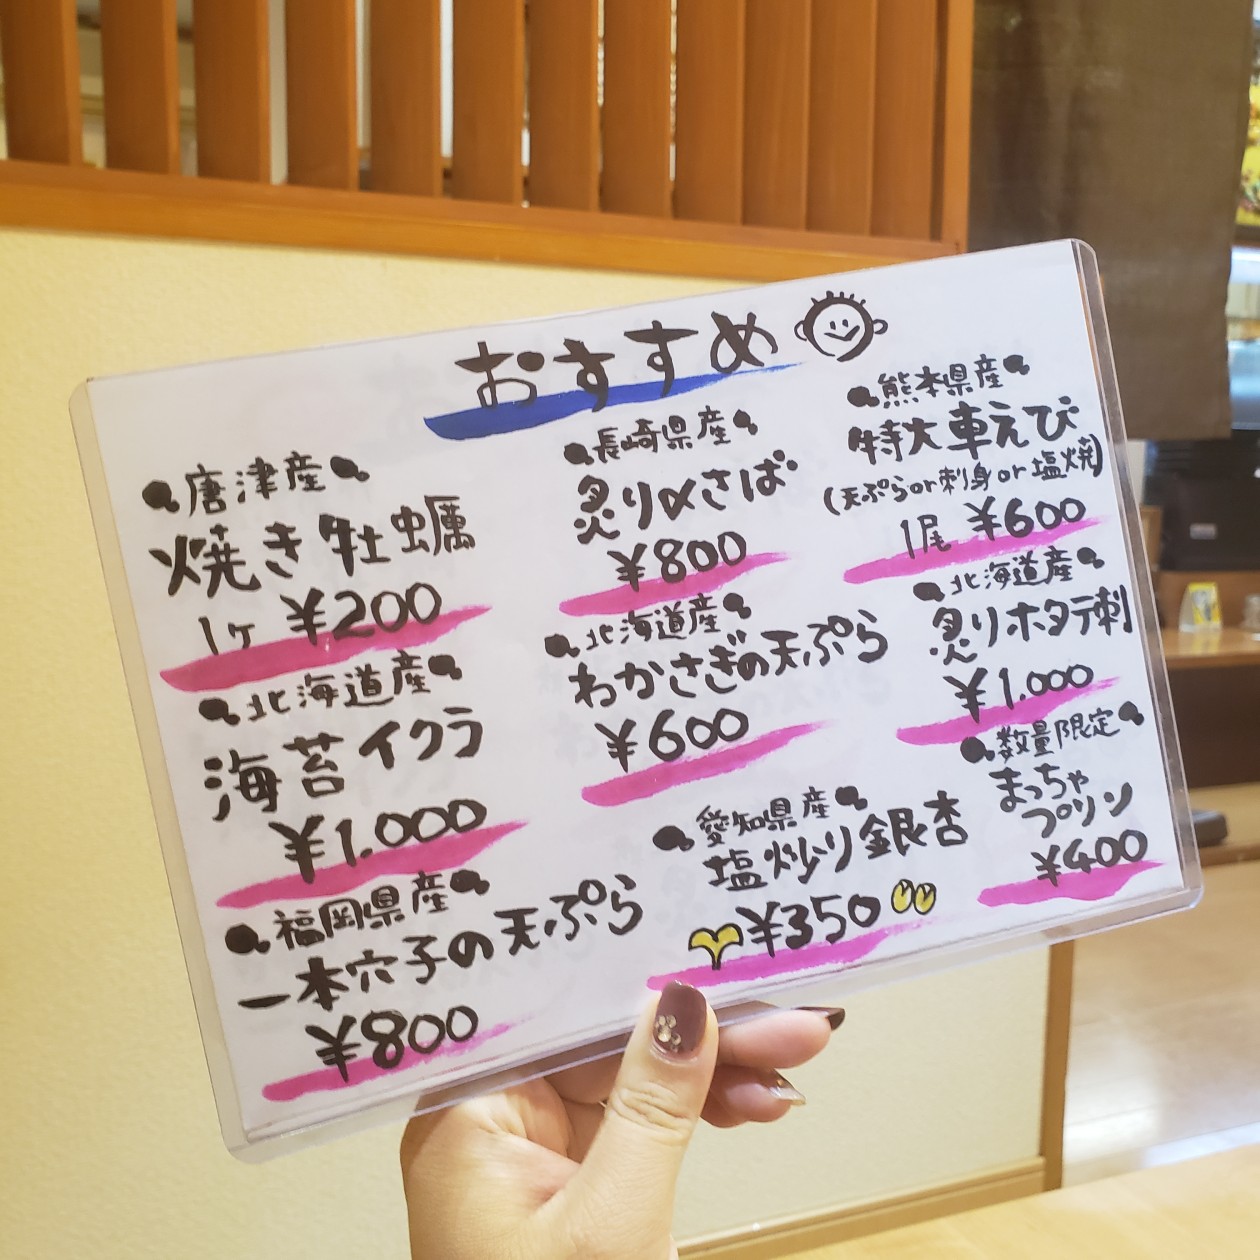 おすすめ
唐津産
焼き牡蠣
1ヶ ¥200
北海道産
海苔イクラ
¥1.000
福岡県産
一本穴子の天ぷら
¥800
長崎県産
炙り〆さば
¥800
北海道産
わかさぎの天ぷら
¥600
愛知県産
塩炒り銀杏
¥350
熊本県産
特大車えび
(天ぷらor刺身or塩焼)
1尾 ¥600
北海道産
炙りホタテ刺
¥1.000
数量限定
まっちゃ
プリン
¥400